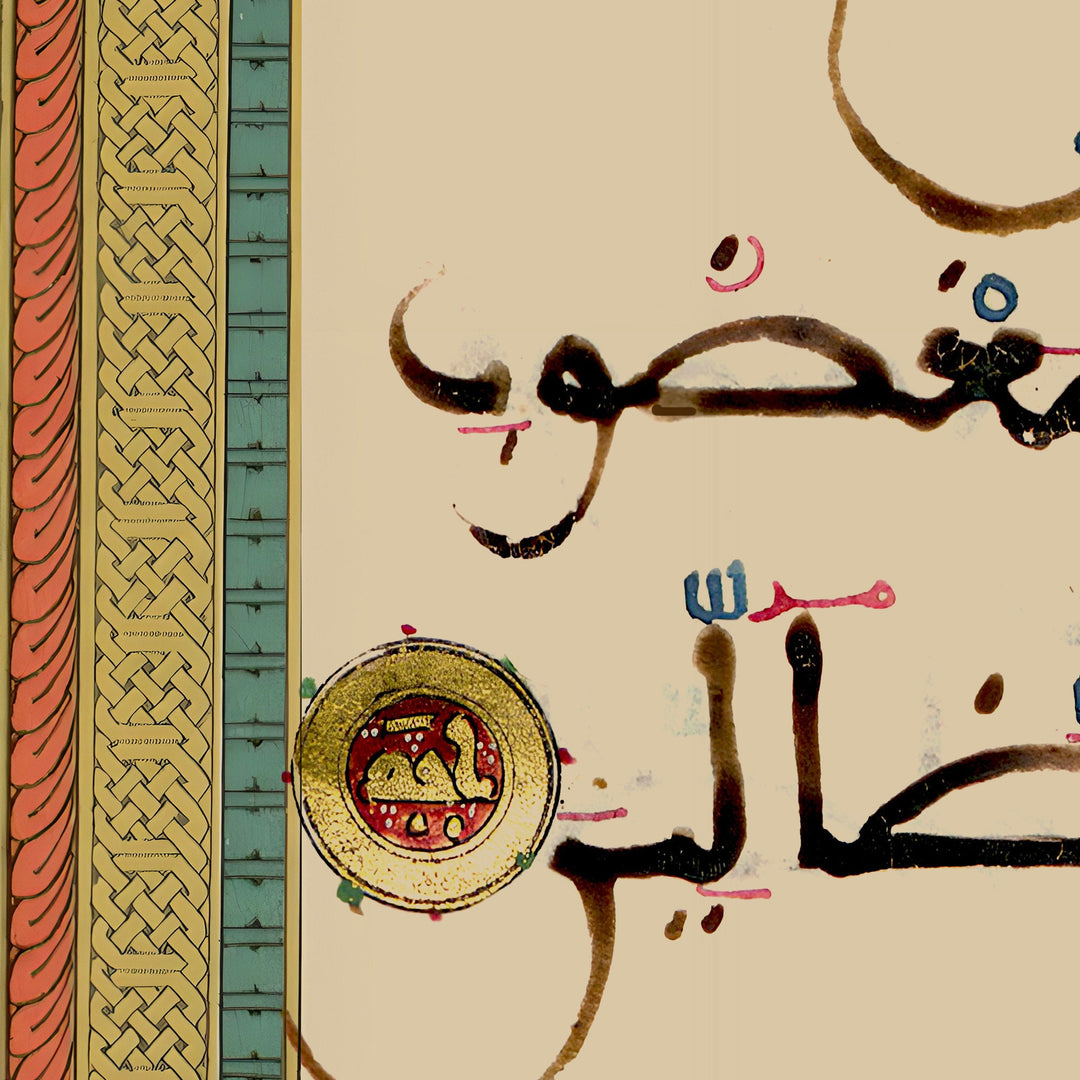 مَغْضُوبِ
ضَآلِّينَ اية